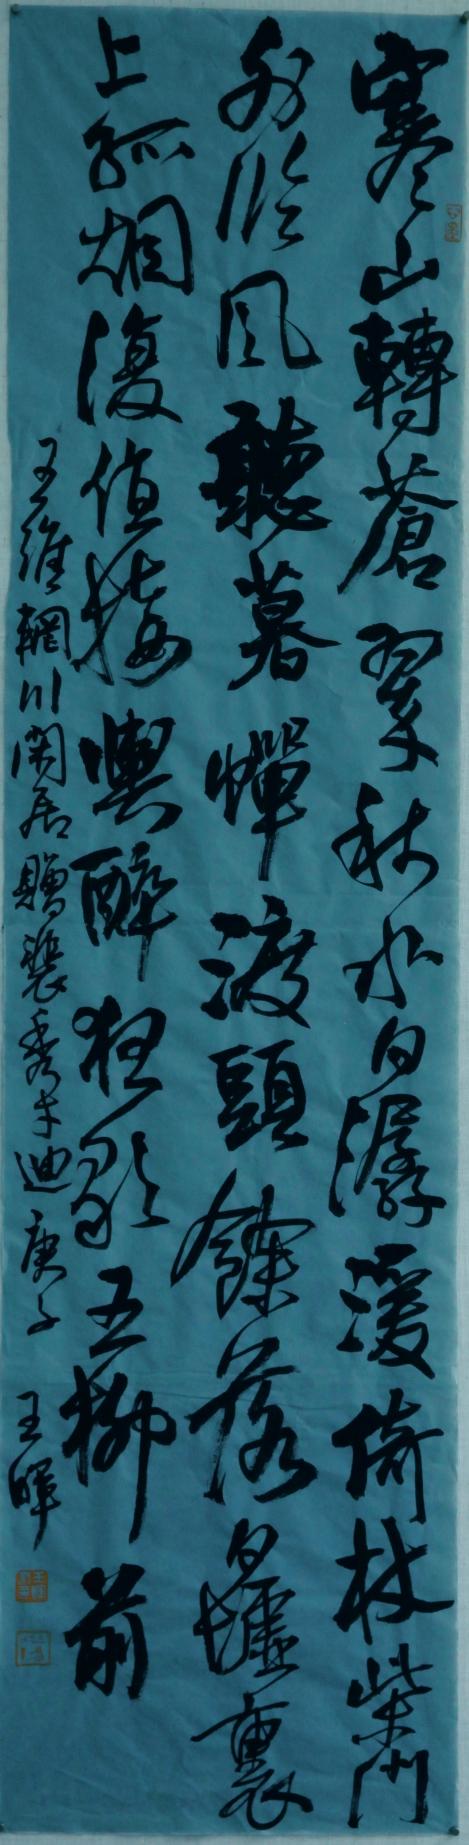 寒山轉蒼翠秋水日潺湲倚杖柴門
外臨風聽暮蟬渡頭餘落日墟裏
上孤烟復值接輿醉狂歌五柳前
王維輞川閑居贈裴秀才迪庚子
王暉